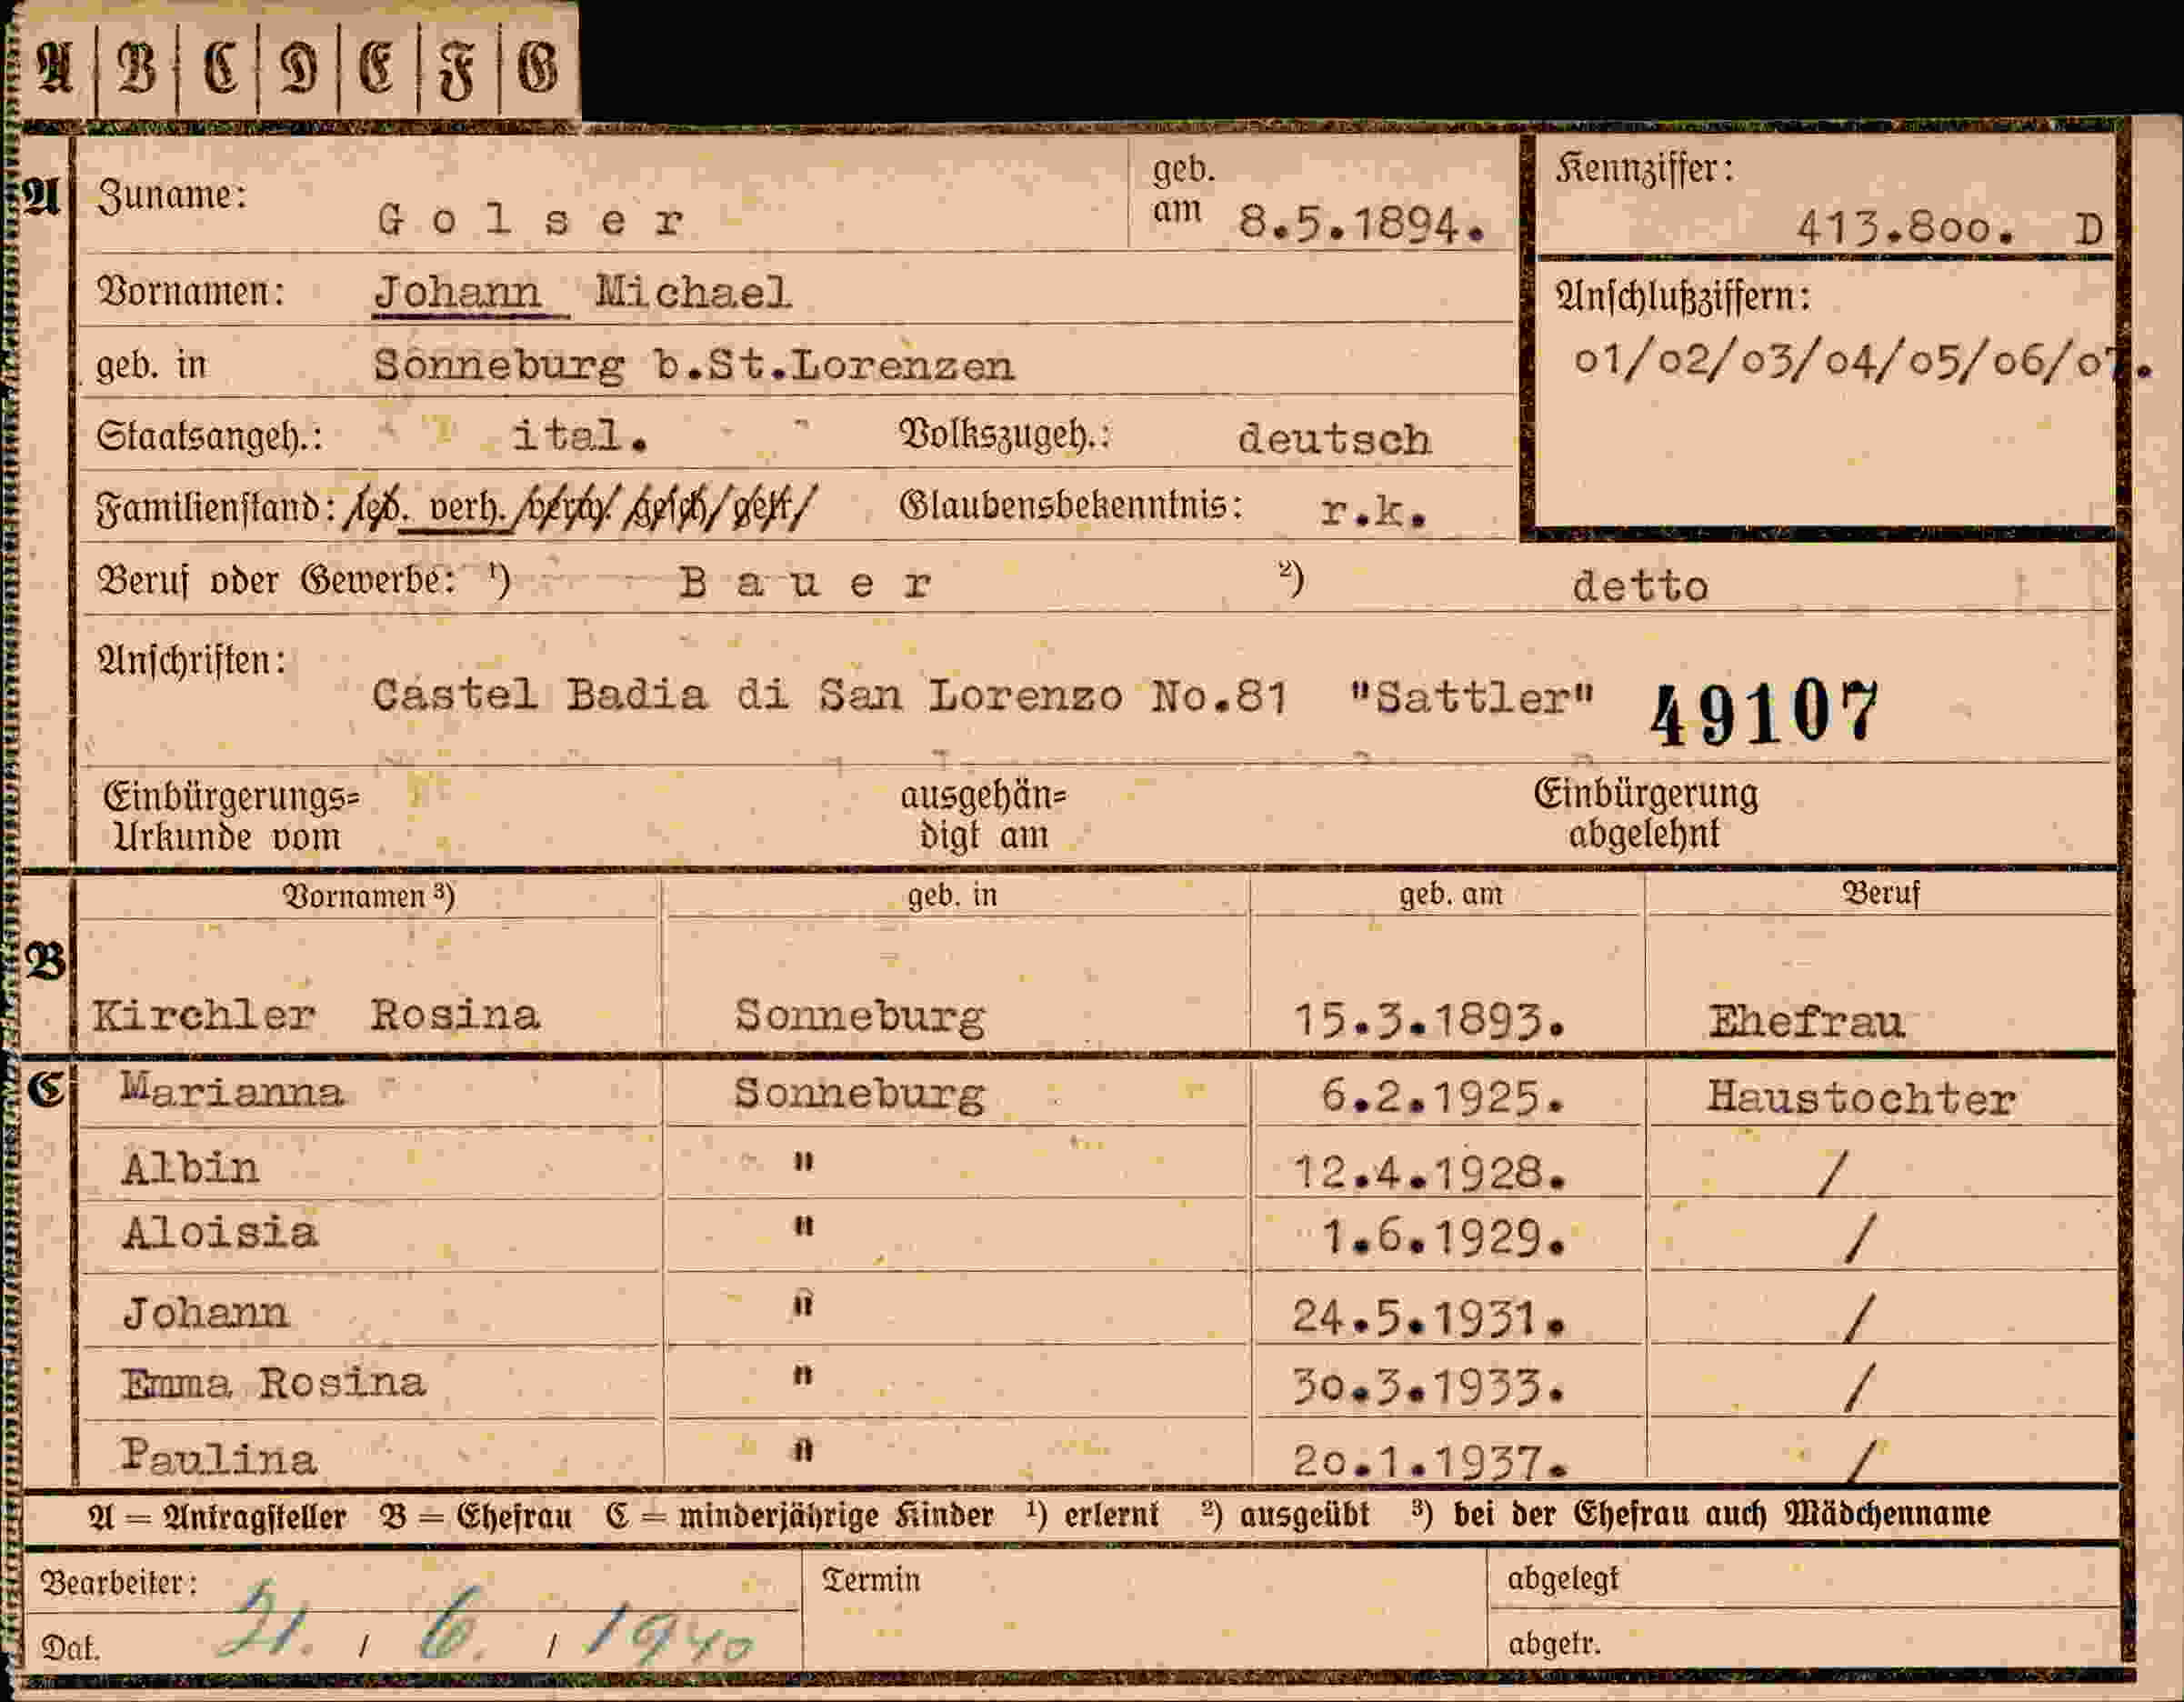 A | B | C | D | E | F | G
A Zuname: Golser geb. am 8.5.1894. Kennziffer: 413.800. D
Vornamen: Johann Michael Anschlußziffern:
geb. in Sonneburg b.St.Lorenzen 01/02/03/04/05/06/07.
Staatsangeh.: ital. Volkszugeh.: deutsch
Familienstand: led. verh. verw. gesch. getr. Glaubensbekenntnis: r.k.
Beruf oder Gewerbe: ¹) Bauer ²) detto
Anschriften: Castel Badia di San Lorenzo No.81 "Sattler" 49107
Einbürgerungs= ausgehän= Einbürgerung
Urkunde vom digt am abgelehnt
Vornamen ³) geb. in geb. am Beruf
B Kirchler Rosina Sonneburg 15.3.1893. Ehefrau
C Marianna Sonneburg 6.2.1925. Haustochter
Albin " 12.4.1928. /
Aloisia " 1.6.1929. /
Johann " 24.5.1931. /
Emma Rosina " 30.3.1933. /
Paulina " 20.1.1937. /
A = Antragsteller B = Ehefrau C = minderjährige Kinder ¹) erlernt ²) ausgeübt ³) bei der Ehefrau auch Mädchenname
Bearbeiter: Termin abgelegt
Dat. 21. / 6. / 1940 abgetr.